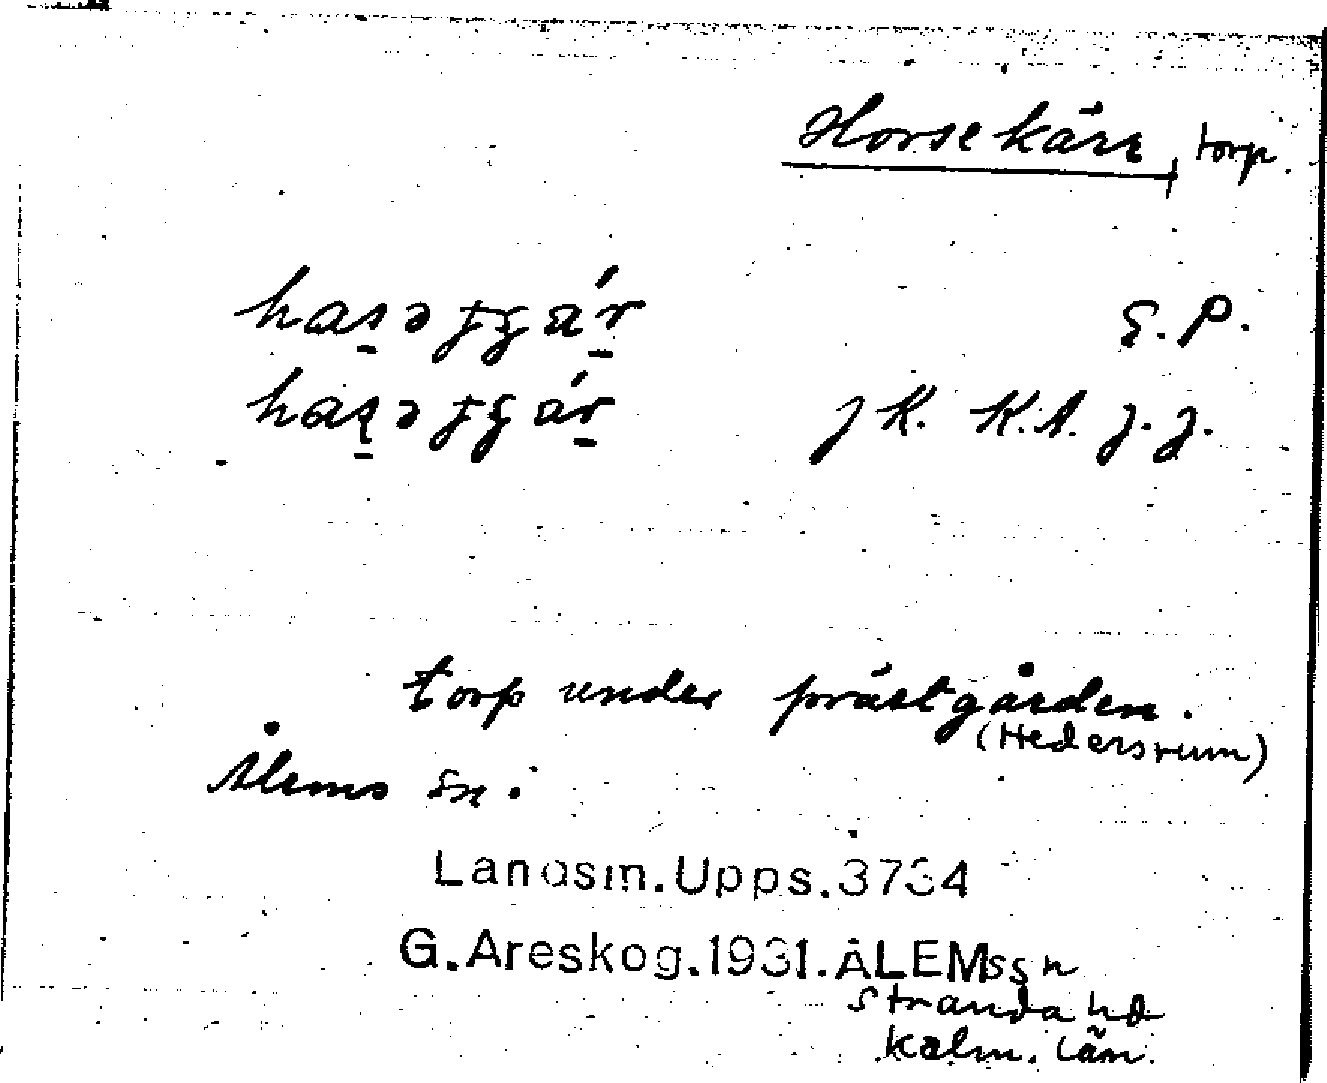 Horsekärr, torp.
E.P.
JK. K.A. J.J.
torp under prästgården.
(Hedersrum)
Ålems sn.
Landsm.Upps.3734
G.Areskog.1931.ÅLEMs sn
Stranda hd
Kalm. län.